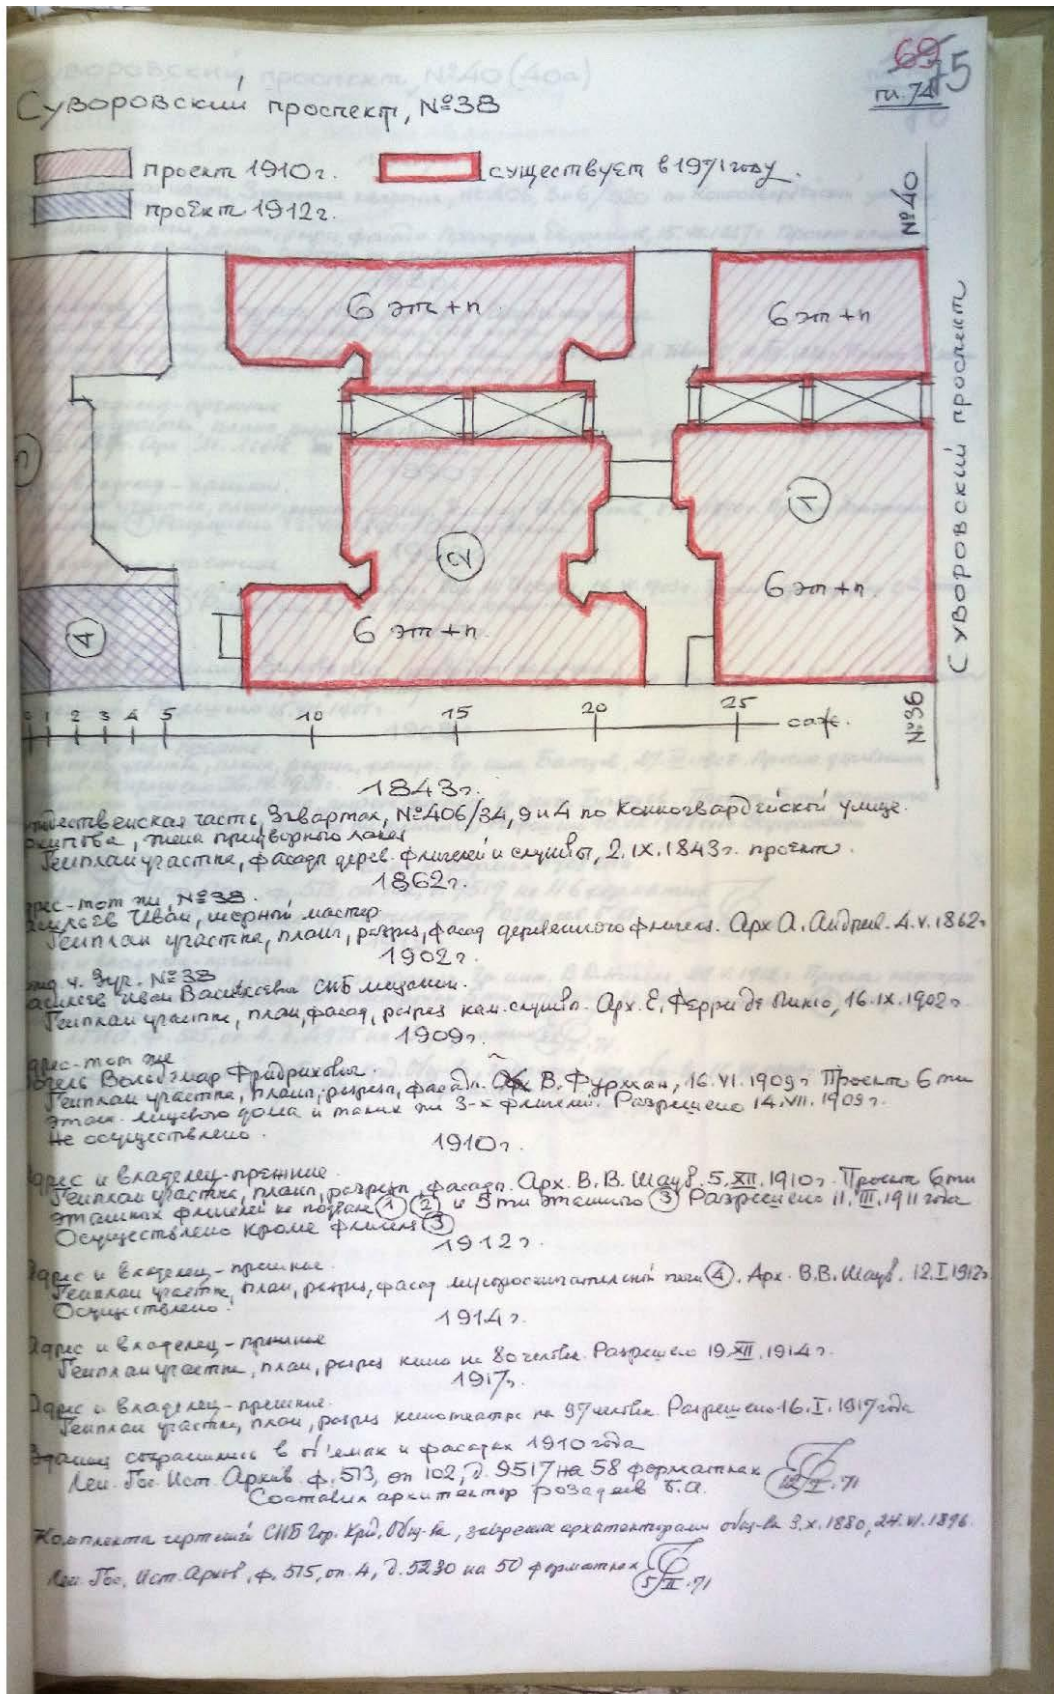 69
75
пл. 74
Суворовский проспект, №38
проект 1910г. существует в 1971 году.
проект 1912г.
№40
6 эт + п
6 эт + п
Суворовский проспект
1
2
6 эт + п
6 эт + п
4
1 2 3 4 5 10 15 20 25 саж.
№36
1843г.
часть, 3 квартал, №406/34, 9 и 4 по Конногвардейской улице.
жена придворного лакея
Генплан участка, фасады дерев. флигелей и службы, 2.IX.1843г. проект.
1862г.
тот же, №38.
Иван, шорный мастер
Генплан участка, планы, разрез, фасад деревянного флигеля. Арх А. Андреев. 4.V.1862г
1902г.
ч. 3 уч. №38
Иван Васильевич СПБ мещанин.
Генплан участка, план, фасад, разрез кам. службы. Арх. Е. Ферри де Пиньи, 16.IX.1902г
1909г.
тот же
Вольдемар Фридрихович.
Генплан участка, планы, разрезы, фасады. В. Фурман, 16.VI.1909г Проект 6ти
этажн. лицевого дома и таких же 3-х флигелей. Разрешено 14.VII.1909г.
Не осуществлено.
1910г.
Адрес и владелец-прежние.
Генплан участка, планы, разрезы, фасады. Арх. В. В. Шауб. 5.XII.1910г. Проект 6ти
этажных флигелей на подвале 1 2 и 5ти этажного 3 Разрешено 11.III.1911 года
Осуществлено кроме флигеля 3
1912г.
Адрес и владелец-прежние.
Генплан участка, план, разрез, фасад мусоросжигательной печи 4. Арх. В.В. Шауб. 12.I.1912г.
Осуществлено.
1914г.
Адрес и владелец-прежние
Генплан участка, план, разрез кино на 80 человек. Разрешено 19.XII.1914г.
1917г.
Адрес и владелец-прежние.
Генплан участка, план, разрез кинотеатра на 97 человек. Разрешено 16.I.1917 года
Здания сохранились в объемах и фасадах 1910 года
Лен. Гос. Ист. Архив ф. 513, оп 102, д. 9517 на 58 форматках 12.I.71
Составил архитектор Розадеев Б.А.
Комплекта чертежей СПБ Гор. Кред. Общ-ва, заверенных архитекторами общ-ва 3.X.1880, 24.VI.1896.
Лен. Гос. Ист. Архив, ф. 515, оп. 4, д. 5230 на 50 форматках 5 II.71